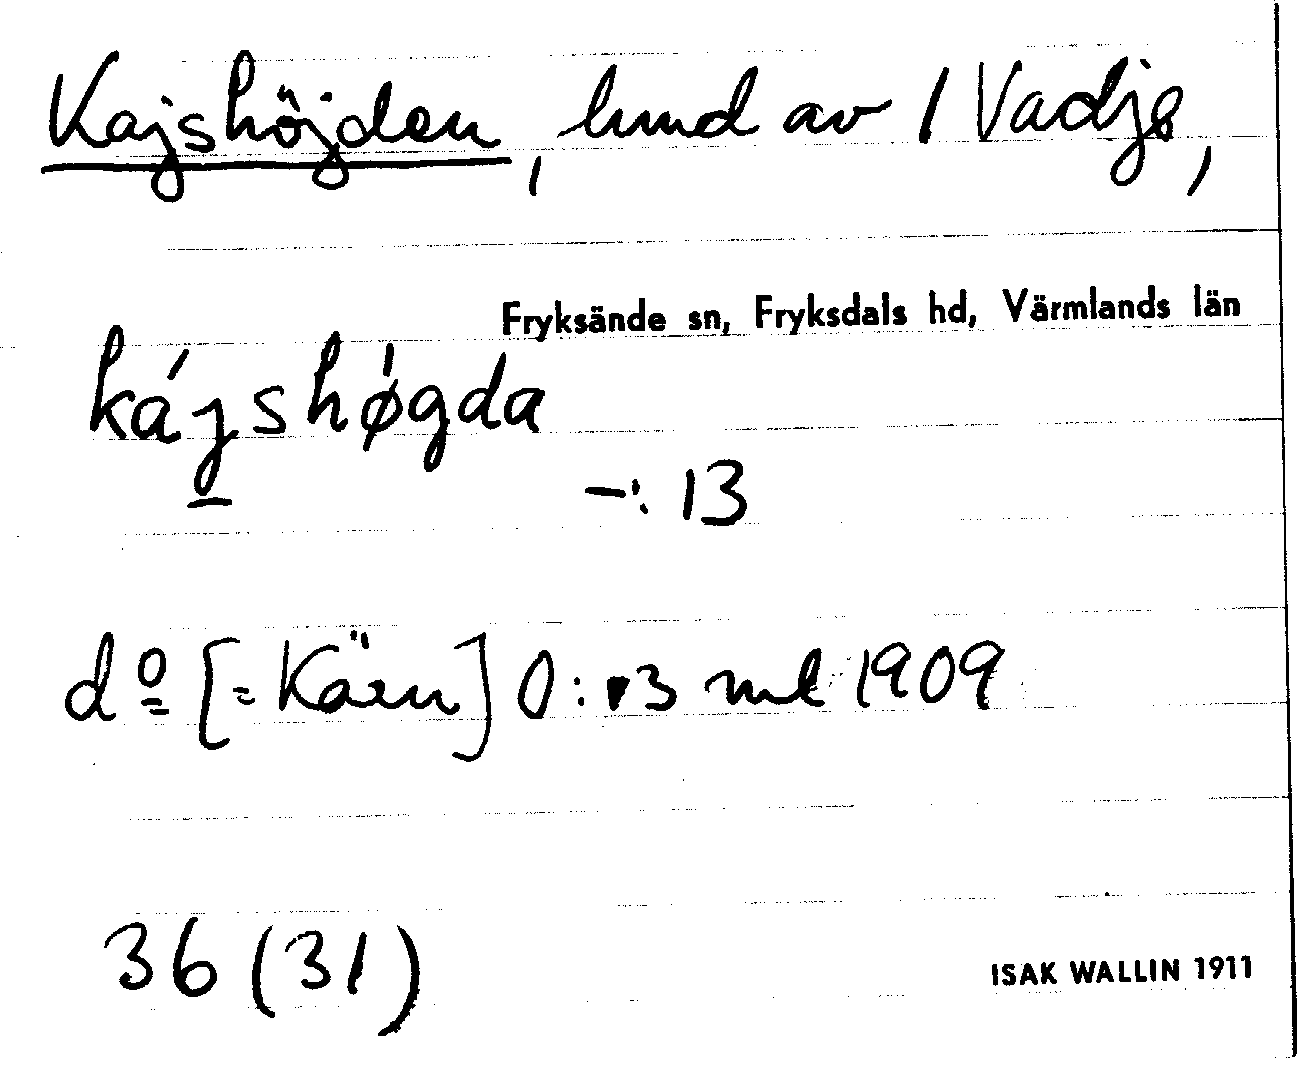 Kajshöjden, hmd av 1 Vadje,
Fryksände sn, Fryksdals hd, Värmlands län
kájshøgda
–: 13
dº [= Käen] 0: 3 ml 1909
36 (31)
ISAK WALLIN 1911